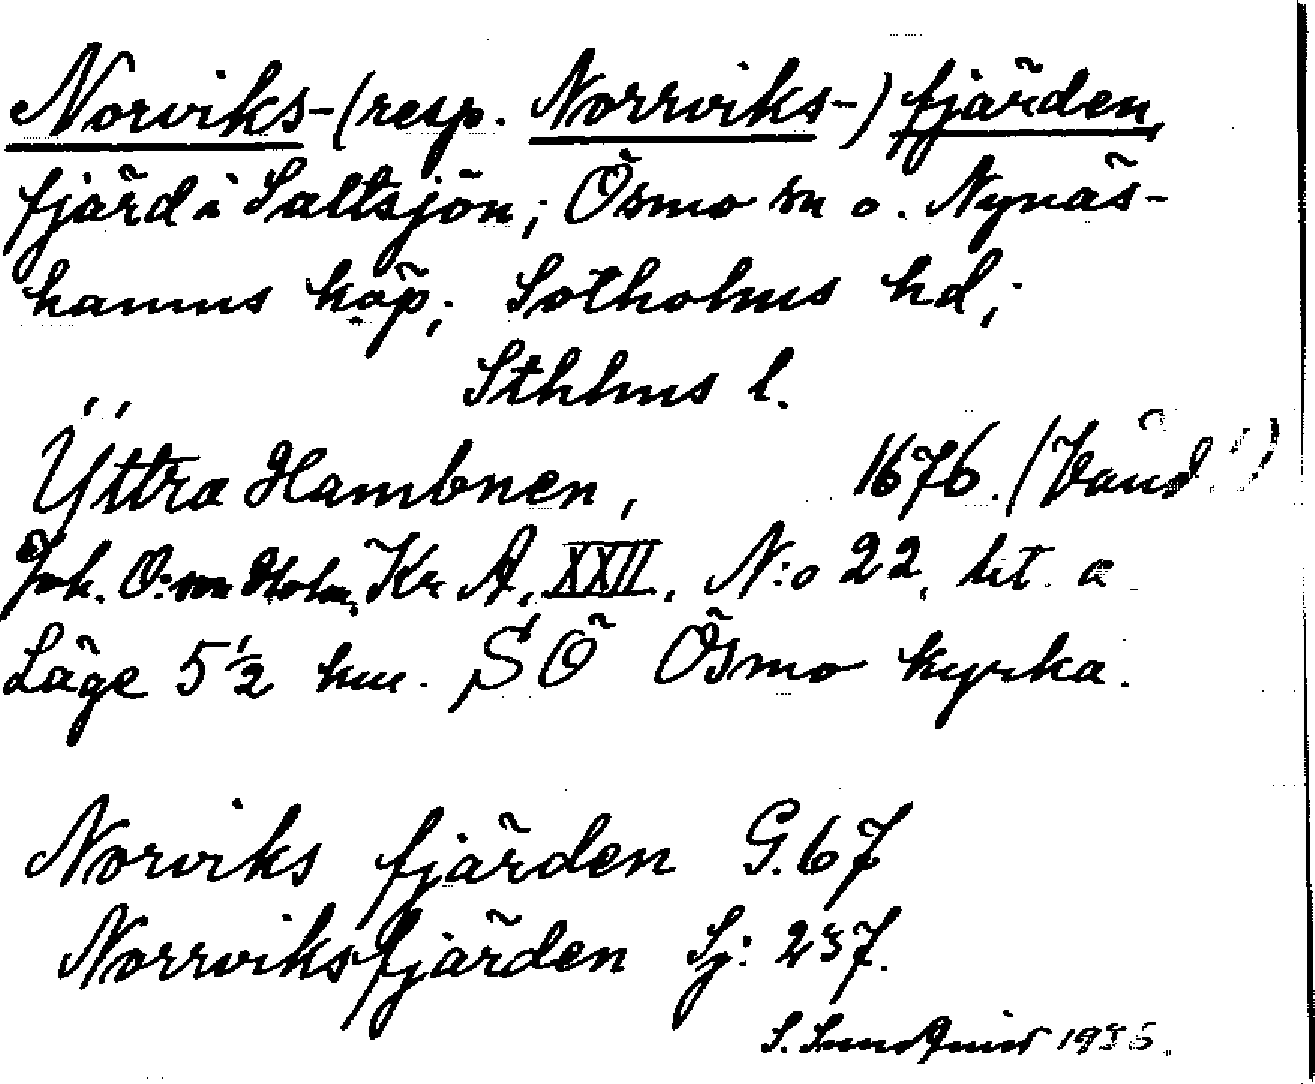 Norviks-(resp. Norrviks-) fjärden,
fjärd i Saltsjön; Ösmo sn o. Nynäs-
hamns köp; Sotholms hd;
Sthlms l.
Yttra Hambnen, 1676.
Joh. O:son Holm, Kr A, XXII, N:o 22, lit. a
Läge 5 1/2 km. SÖ Ösmo kyrka.
Norviks fjärden G.67
Norrviksfjärden Sj: 237.
S. Sundquist 1935.